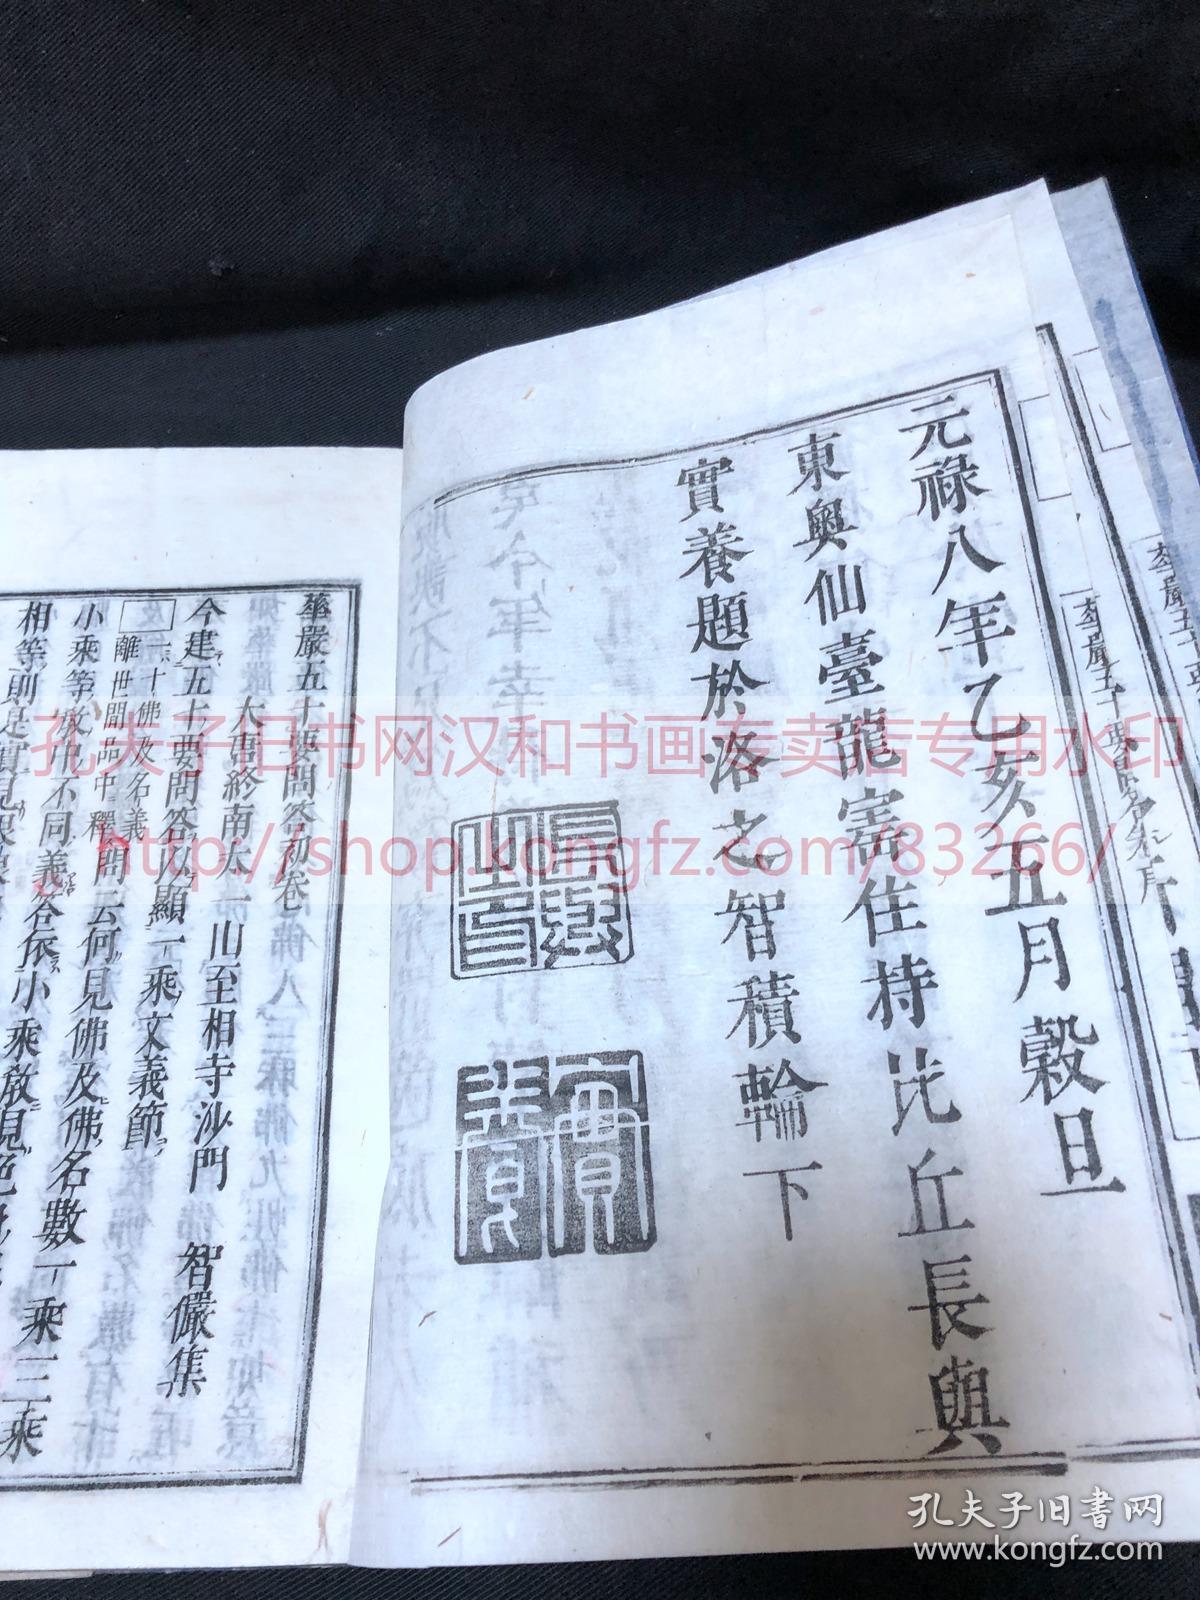 元祿八年乙亥五月穀旦
東奧仙臺龍寳住持比丘長與
實養題於洛之智積輪下
實養
華嚴五十要問答初卷
大唐終南太一山至相寺沙門 智儼集
今建五十要問答以顯一乘文義節
一十佛及名義
離世間品中釋
問云何見佛及佛名數一乘三乘
小乘等教中不同義答依小乘教見色
相等則是實見
孔夫子旧书网汉和书画专卖店专用水印
http://shop.kongfz.com/83266/
孔夫子旧书网
www.kongfz.com